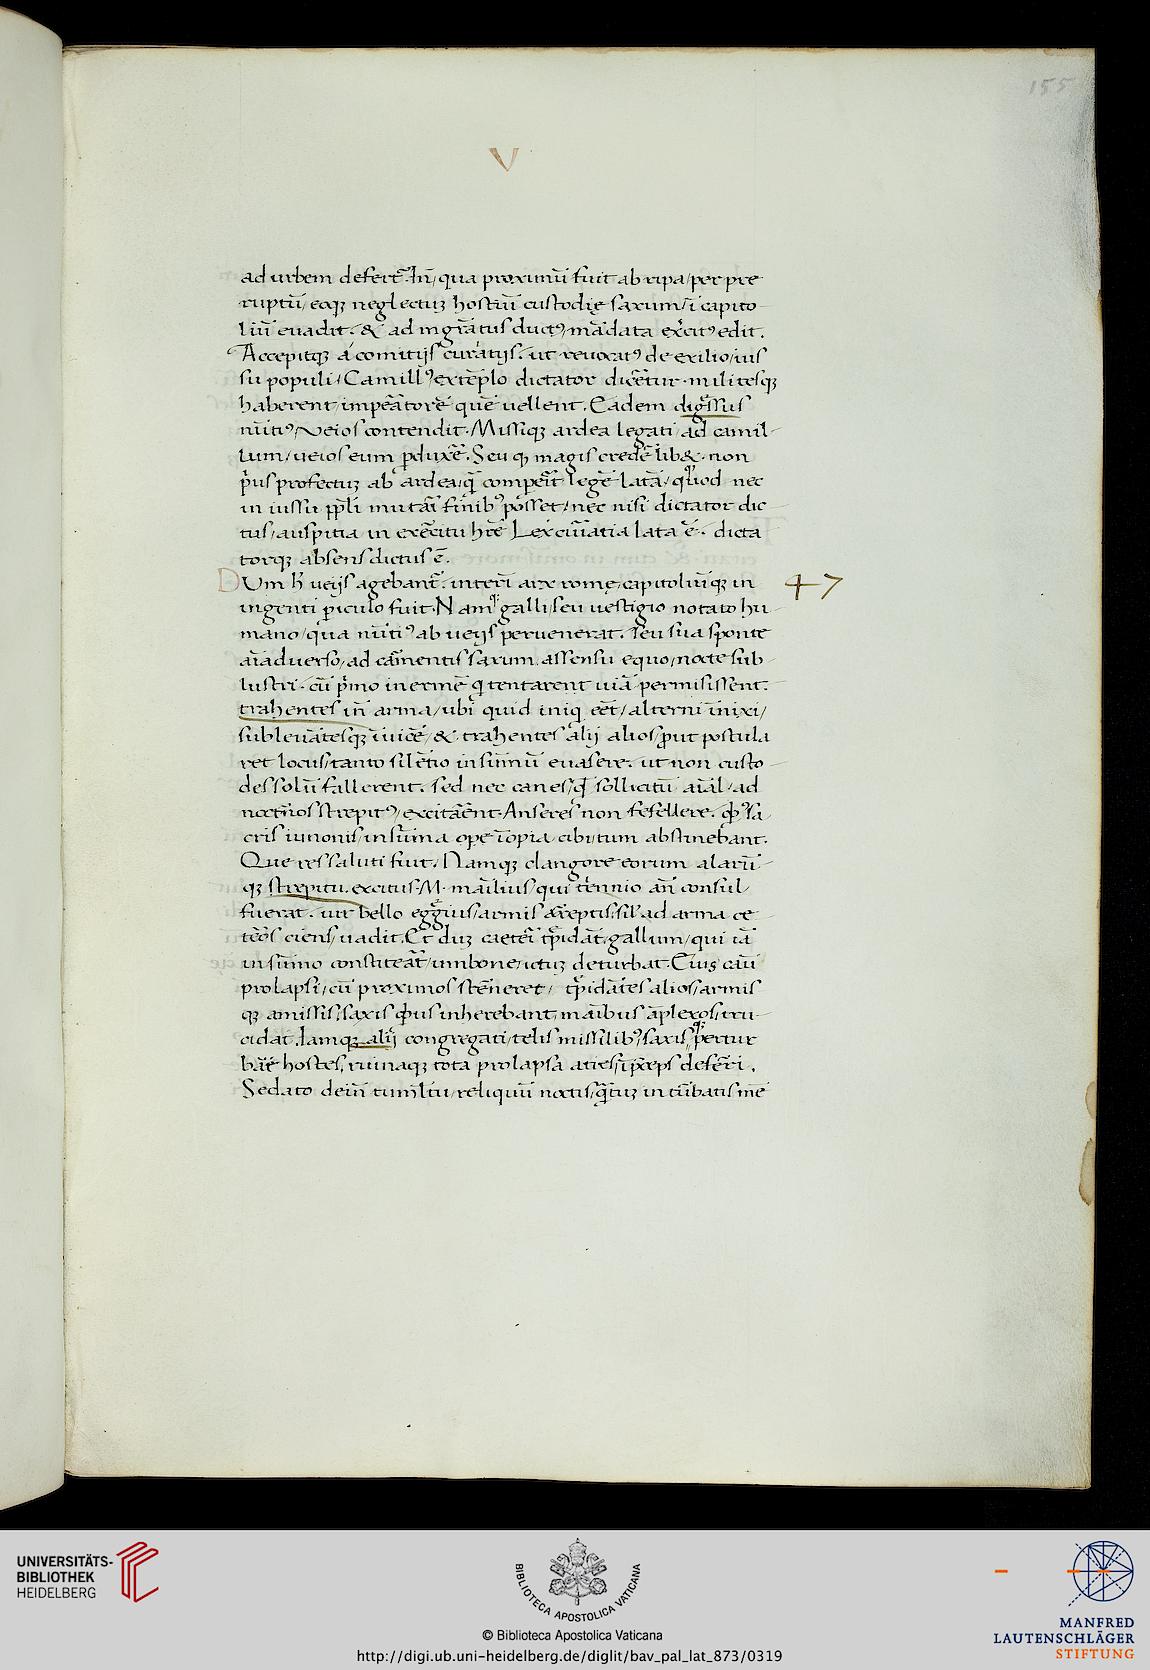 155
V
ad urbem defert̃. In̄/ qua proximū fuit ab ripa/ per pre
ruptū/ eoqꝫ neglectuꝫ hostiū custodię saxum/ ī capito-
liū euadit. & ad mgr̃atus duct⁹/ mādata exẽcit⁹ edit.
Accepitqꝫ á comitijs curãtijs. ut reuocat⁹ de exilio/ ius
su populi/ Camill⁹/ extẽplo dictator dicẽtur. militesqꝫ
haberent/ impẽatorē quē uellent. Eadem digr̃ssus
nūti⁹/ Veios contendit. Missiqꝫ ardea legati/ ad camil-
lum/ ueios eum pduxẽ. Seu qꝫ magis credẽ lib&. non
p̃us profectuꝫ ab ardea/ q̃ competĩt legē latā/ quod nec
in iussu pp̄li mutãi finib⁹ posset/ nec nisi dictator dic-
tus/ auspitia in exẽcitu hr̃e Lex cur̃iatia lata ē. dicta
torqꝫ absens dictus ē.
DUm h̄ veijs agebant̃. interī arx romę, capitoliūqꝫ in
ingenti piculo fuit. Namqꝫ galli/ seu uestigio notato hu-
mano/ qua nūti⁹ ab ueijs peruenerat. seu sua sponte
aīaduerso/ ad cãmentis saxum assensu equo/ nocte sub-
lustri. cū p̃mo inermē q̃ tentarent uiā/ permisissent.
trahentes in̄ arma/ ubi quid iniq eēt/ alterni īnixi/
subleuãtesqꝫ īuicē/ & trahentes alij alios/ put postula
ret locus/ tanto silẽtio in summū euasere. ut non custo-
des solū fallerent. sed nec canes/ qd̃ sollicitū aīal/ ad
noct̃nos strepit⁹/ excitãent. Anseres non fefellere. q̃b⁹ sa-
cris iunonis/ in sūma ope īopia/ cibi/ tum abstinebant.
Que res saluti fuit. Namqꝫ clangore eorum alarū-
qꝫ strepitu excitus. M. mãlius/ qui tẽnnio an̄ consul
fuerat. uir bello egr̃gius/ armis arr̃eptis/ sĩl ad arma ce-
tẽos ciens/ uadit. Et duꝫ caetẽi tp̃idãt/ gallum/ qui iā
in sūmo constitẽat/ umbone/ ictuꝫ deturbat. Cuis casū
prolapsi/ cū proximos stẽneret/ tp̃idãtes alios/ armis
qꝫ amissis/ saxis q̃bus inherebant/ mãibus ãplexos/ tru-
cidat. Iamqꝫ alij congregati/ telis missilib⁹/ saxis/ pertur
bãe hostes, ruinaqꝫ tota prolapsa acies/ ī p̃ceps defẽri.
Sedato dein̄ tumltu/ reliquū noctis/ q̃tuꝫ in tũbatis mē
47
UNIVERSITÄTS-
BIBLIOTHEK
HEIDELBERG
BIBLIOTECA APOSTOLICA VATICANA
© Biblioteca Apostolica Vaticana
http://digi.ub.uni-heidelberg.de/diglit/bav_pal_lat_873/0319
MANFRED
LAUTENSCHLÄGER
STIFTUNG